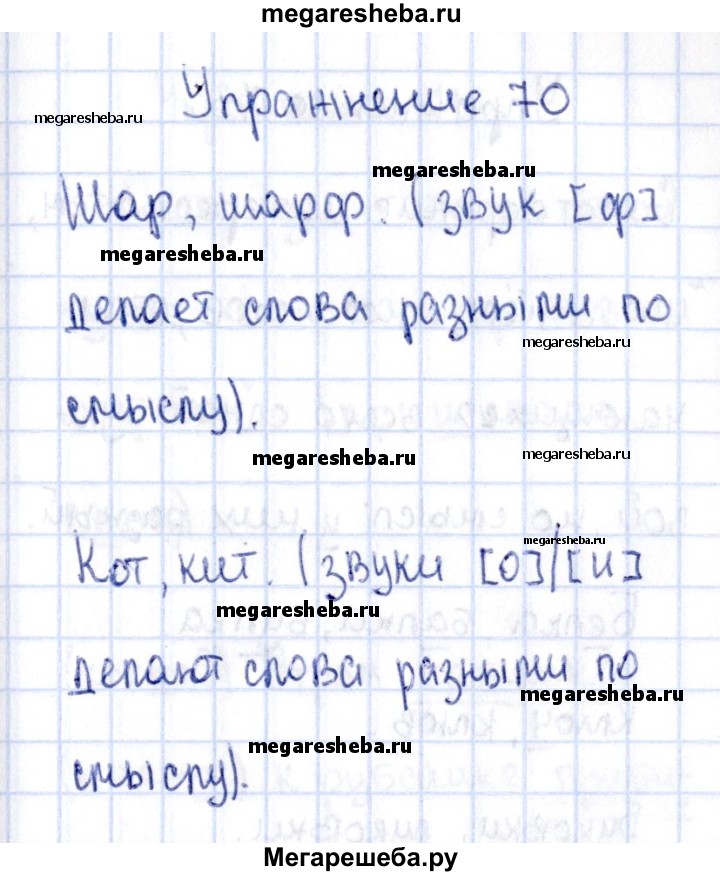 megaresheba.ru
Упражнение 70
megaresheba.ru
megaresheba.ru
Шар, шарф. (звук [ф]
megaresheba.ru
делает слова разными по
megaresheba.ru
смыслу).
megaresheba.ru
megaresheba.ru
megaresheba.ru
Кот, кит. (звуки [о]/[и]
megaresheba.ru
делают слова разными по
megaresheba.ru
megaresheba.ru
смыслу).
Мегарешеба.ру